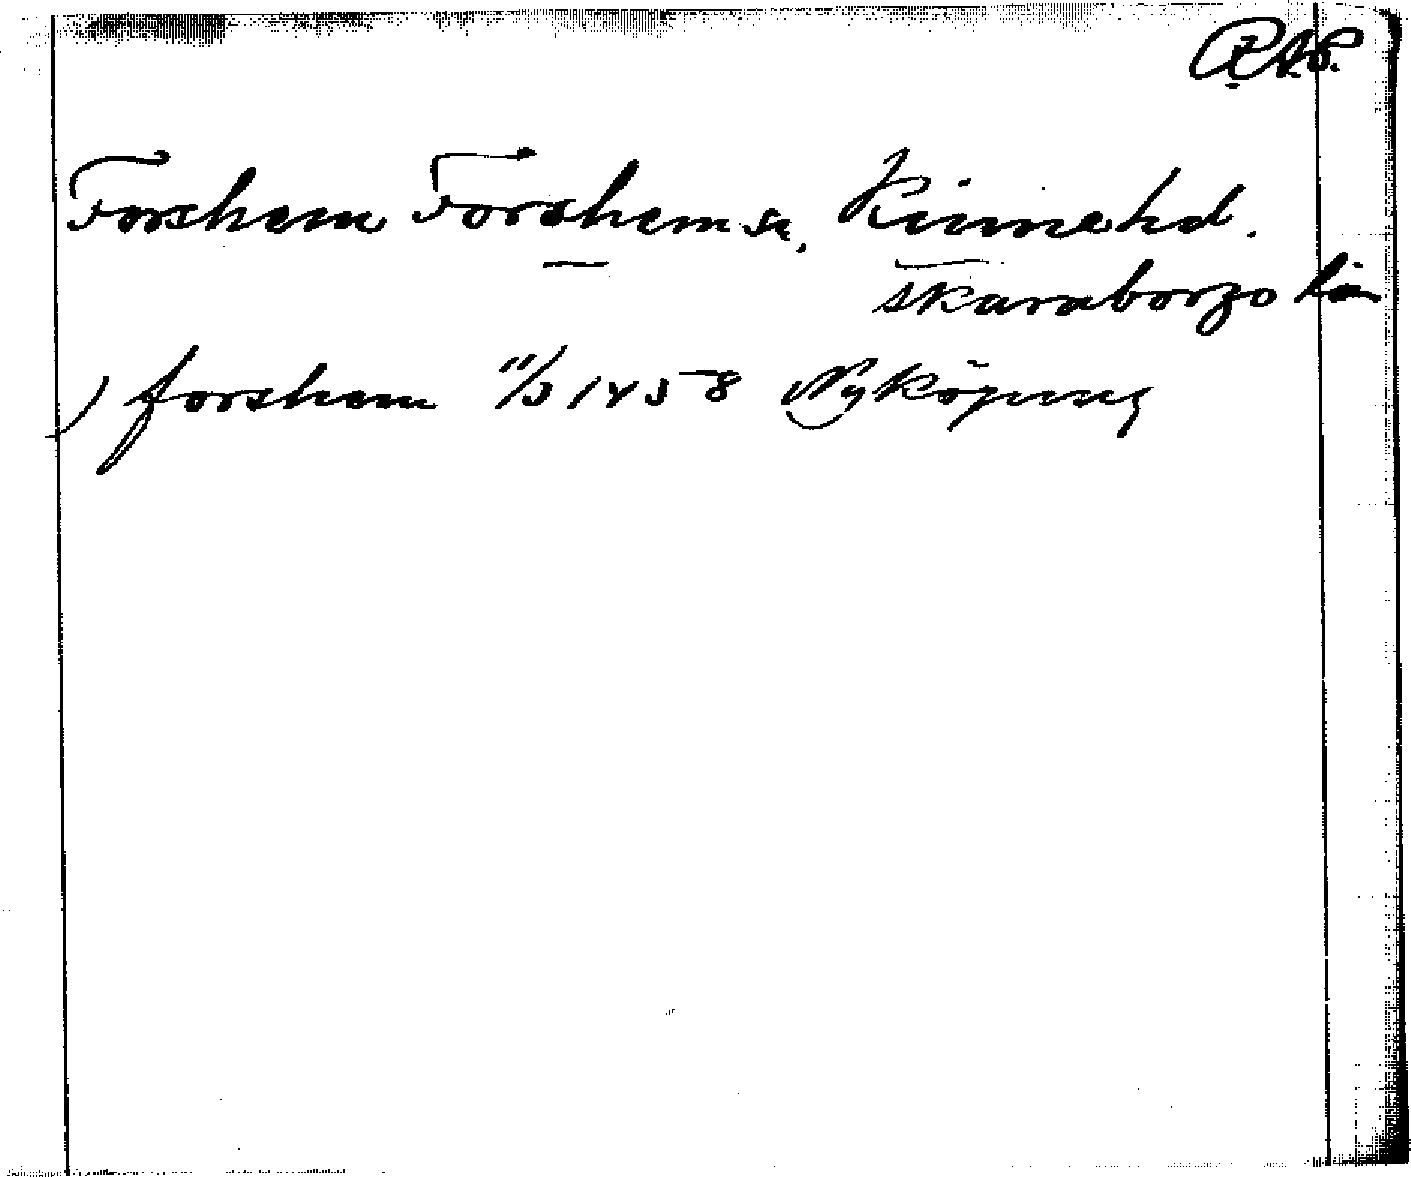 Forshem Forshem sn, Kinnehd.
Skaraborgs län
) forshem 11/5 1458 Nyköping